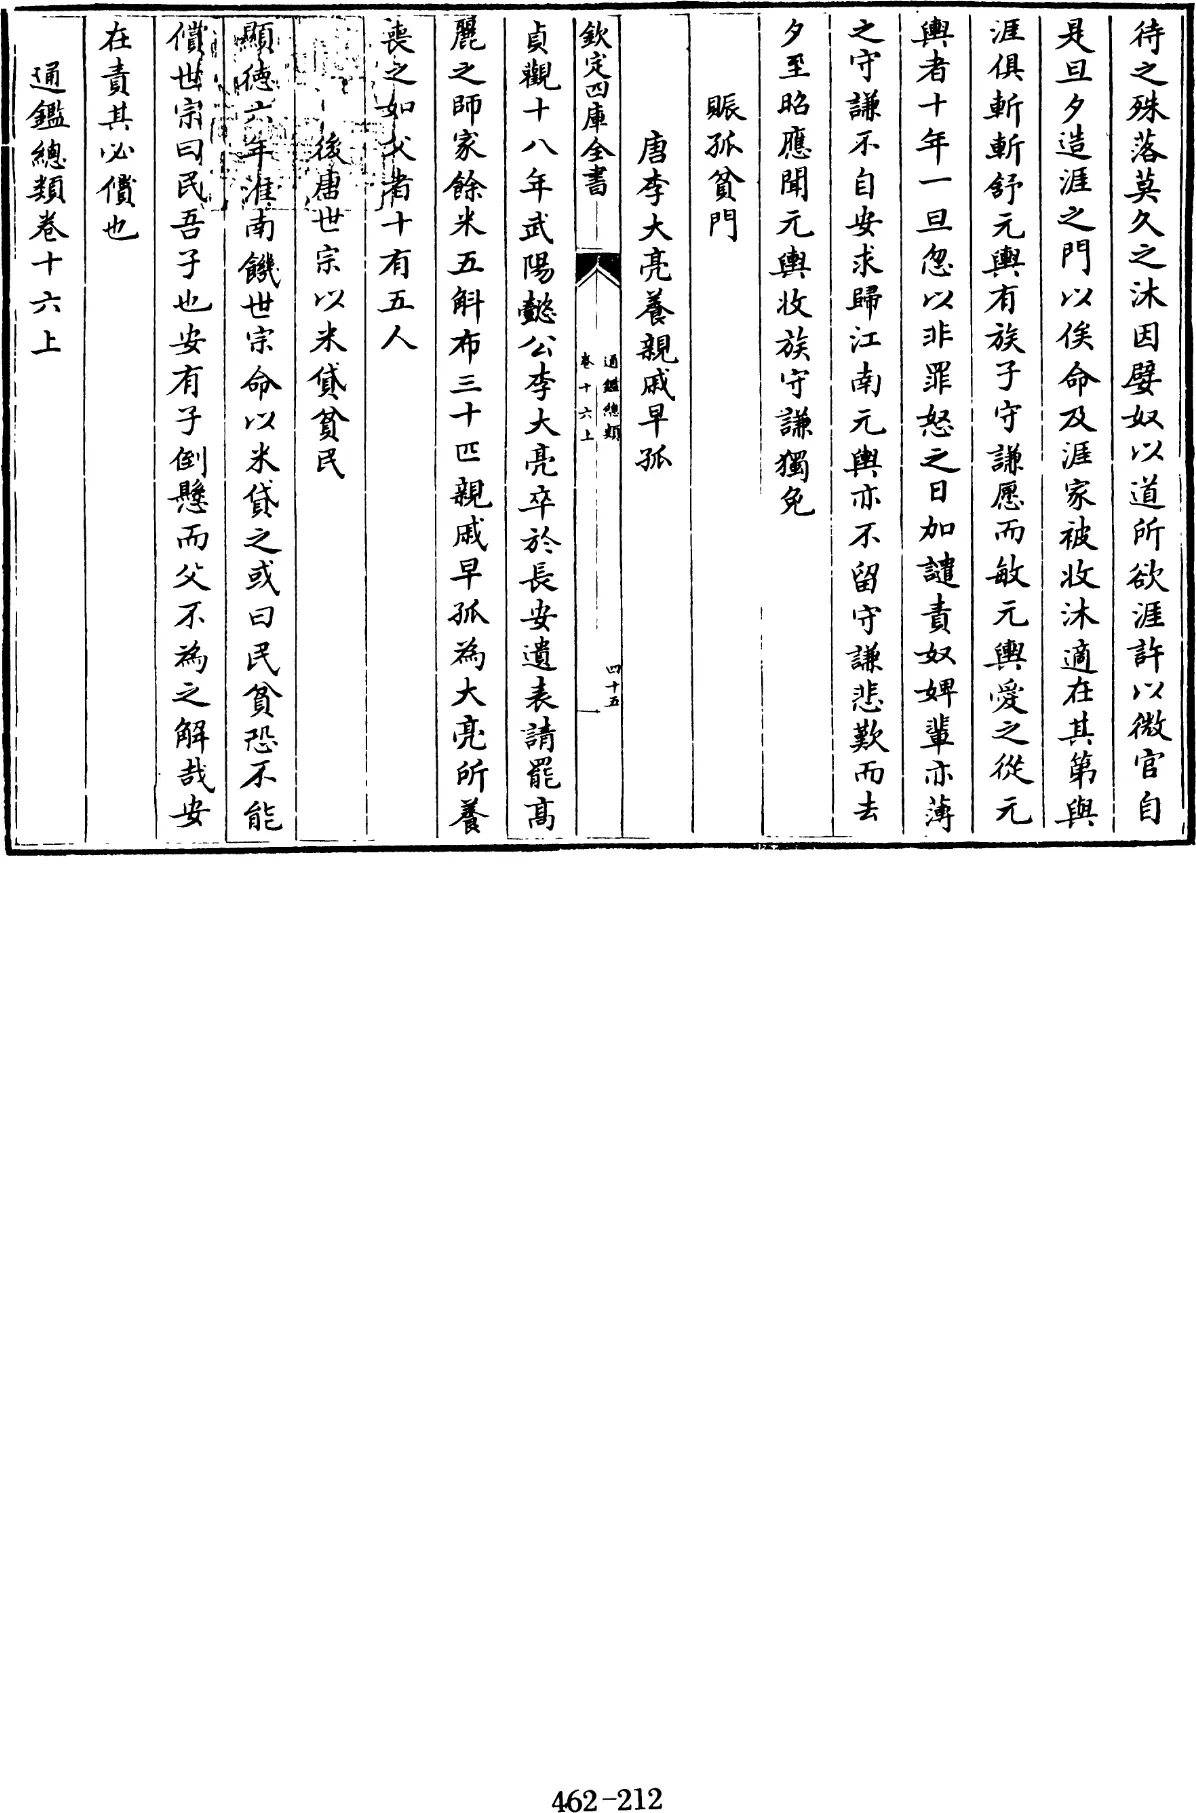 待之殊落莫久之沐因嬖奴以道所欲涯許以微官自
是旦夕造涯之門以俟命及涯家被收沐適在其第與
涯俱斬斬舒元輿有族子守謙愿而敏元輿愛之從元
輿者十年一旦忽以非罪怒之日加譴責奴婢輩亦薄
之守謙不自安求歸江南元輿亦不留守謙悲歎而去
夕至昭應聞元輿收族守謙獨免
賑孤貧門
唐李大亮養親戚早孤
欽定四庫全書
通鑑總類
卷十六上
四十五
貞觀十八年武陽懿公李大亮卒於長安遺表請罷高
麗之師家餘米五斛布三十匹親戚早孤為大亮所養
喪之如父者十有五人
後唐世宗以米貸貧民
顯德六年淮南饑世宗命以米貸之或曰民貧恐不能
償世宗曰民吾子也安有子倒懸而父不為之解哉安
在責其必償也
通鑑總類卷十六上
462-212